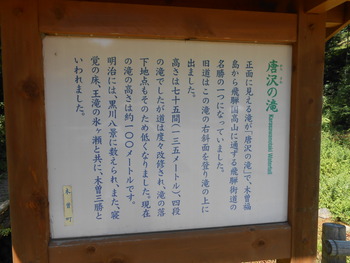 唐沢の滝
からさわ
Karasawanotaki Waterfall
正面に見える滝が「唐沢の滝」で、木曽福
島から飛騨高山に通ずる飛騨街道の
名勝の一つになっていました。
旧道はこの滝の右斜面を登り滝の上に
出ました。
高さは七十五間(一三五メートル)、四段
の滝でしたが国道は度々改修され、滝の落
下地点もそのため低くなりました。現在
の滝の高さは約一〇〇メートルです。
明治には、黒川八景に数えられ、また、寝
覚の床、王滝の氷ヶ瀬と共に、木曽三勝と
いわれました。
木曽町